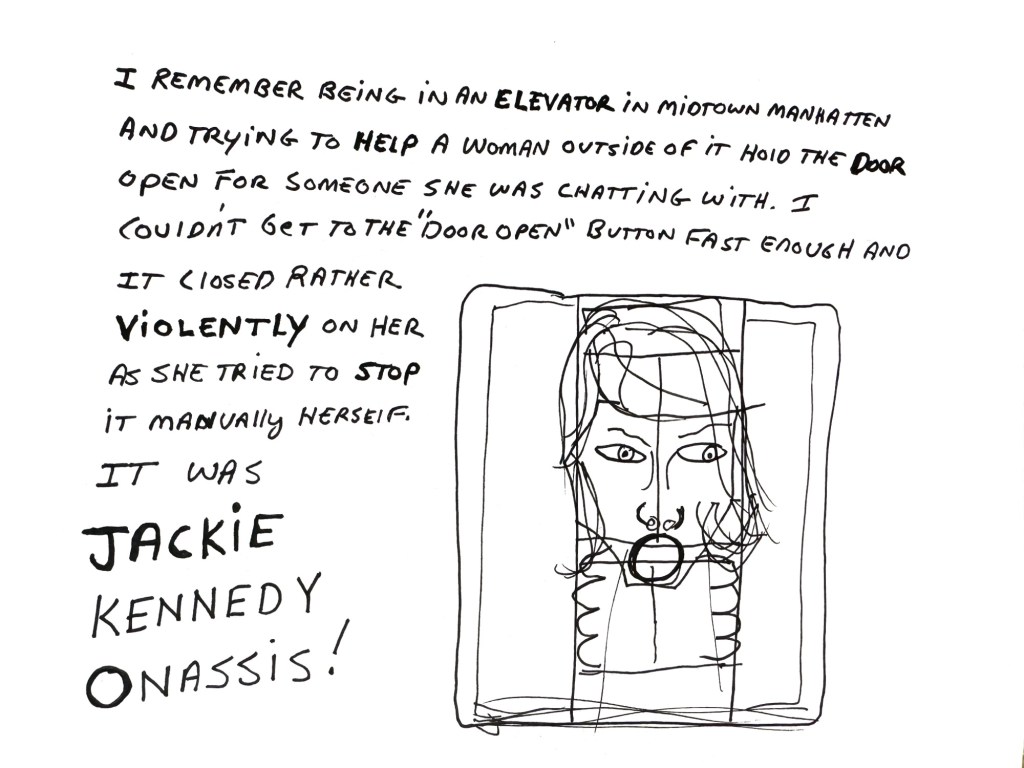 I REMEMBER BEING IN AN ELEVATOR IN MIDTOWN MANHATTEN
AND TRYING TO HELP A WOMAN OUTSIDE OF IT HOLD THE DOOR
OPEN FOR SOMEONE SHE WAS CHATTING WITH. I
COULDN'T GET TO THE "DOOR OPEN" BUTTON FAST ENOUGH AND
IT CLOSED RATHER
VIOLENTLY ON HER
AS SHE TRIED TO STOP
IT MANUALLY HERSELF.
IT WAS
JACKIE
KENNEDY
ONASSIS!